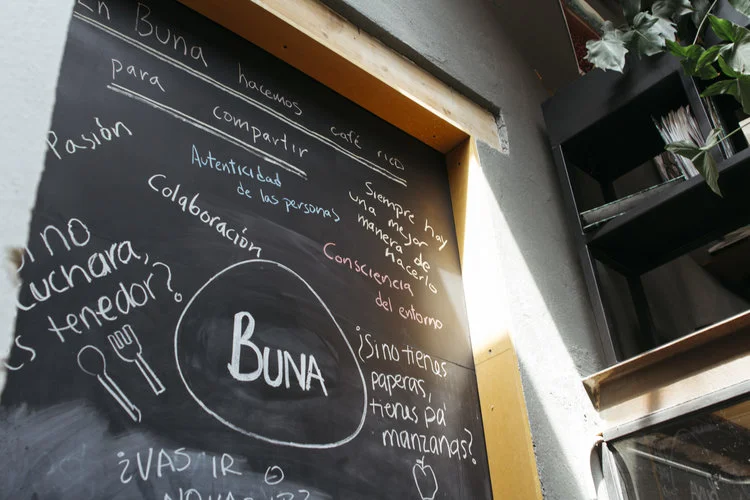 En Buna hacemos café rico
para compartir
Pasión
Autenticidad
de las personas
Colaboración
Siempre hay
una mejor
manera de
hacerlo
Consciencia
del entorno
Si no
cuchara,
es tenedor?
BUNA
¿Si no tienas
paperas,
tienas pa'
manzanas?
¿VAS IR O
NO VAS